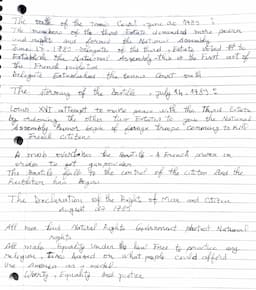 The oath of the Tennis Court - June 20 1789 :
The members of the third Estate demanded more power
and rights and formed the National Assembly
June 17, 1789 - Delegates of the third Estate voted to
Establish the National Assembly this is the first act of
the French revolution
Delegate Established the tennis court oath
The Storming of the Bastille, July 14, 1789 :
Louis XVI attempt to make peace with the Third Estate
by ordering the other two Estates to join the National
Assembly rumor began of foreign troops coming to kill
French citizens
A mob the Bastille a French prison in
order to get gunpowder
The Bastille fell to the control of the citizen and the
Revolution has begun
The Declaration of the Rights of Man and Citizen
August 27 1789
All men have Natural Rights Government protect National
rights
All male Equality under the law Free to practice any
religion, taxes based on what people could afford
Use America as a model
Liberty, Equality and justice